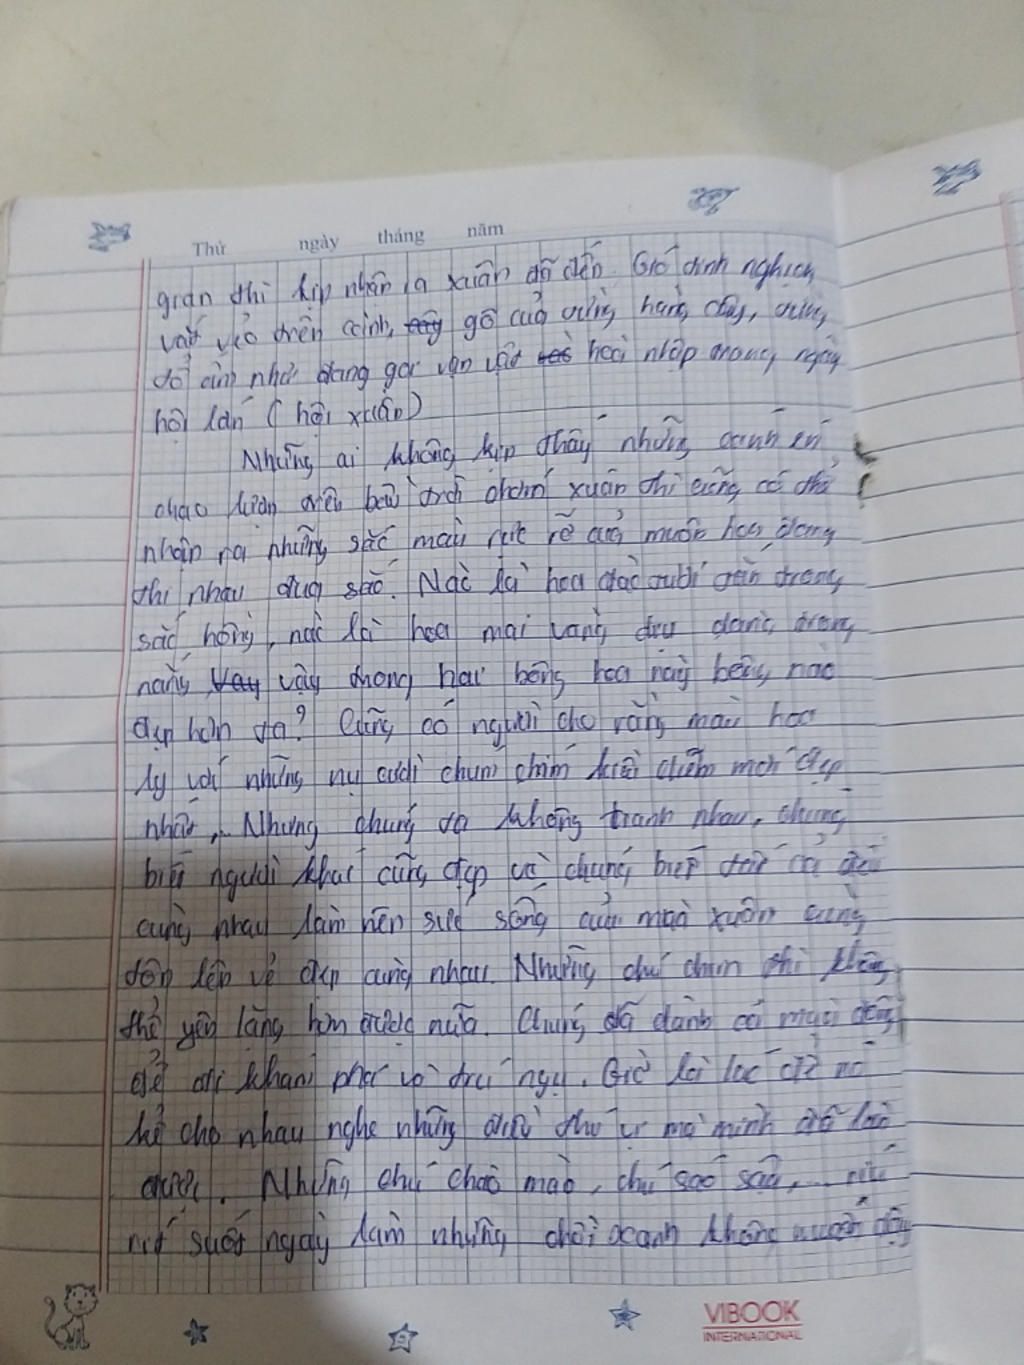 Thứ ngày tháng năm
gian thì kịp nhận ra xuân đã đến. Gió tinh nghịch
vắt vẻo trên cành, gõ cửa từng hàng cây, từng
tổ chim như đang gọi vạn vật hoà nhập trong ngày
hội lớn (hội xuân)
Những ai không kịp thấy những cánh én
chao liện trên bầu trời chớm xuân thì cũng có thể
nhận ra những sắc màu rực rỡ của muôn hoa đang
thi nhau đua sắc. Nào là hoa đào tươi tắn trong
sắc hồng, nào là hoa mai vàng dịu dàng trong
nắng vậy trong hai bông hoa này bông nào
đẹp hơn ta? Cũng có người cho rằng màu hoa
ly với những nụ cười chúm chím kiều diễm mới đẹp
nhất, Nhưng chúng ta không tranh nhau, chúng
biết người khác cũng đẹp và chúng biết tất cả đều
cùng nhau làm nên sức sống của mùa xuân cùng
tôn lên vẻ đẹp cùng nhau. Những chú chim thì không
thể yên lặng hơn được nữa. Chúng đã dành cả mùa đông
để đi khám phá và trú ngụ. Giờ là lúc để nó
kể cho nhau nghe những điều thú vị mà mình đã làm
được. Những chú chào mào, chú sáo sậu, ... ríu
rít suốt ngày làm những chồi xanh không muốn dậy
VIBOOK
INTERNATIONAL